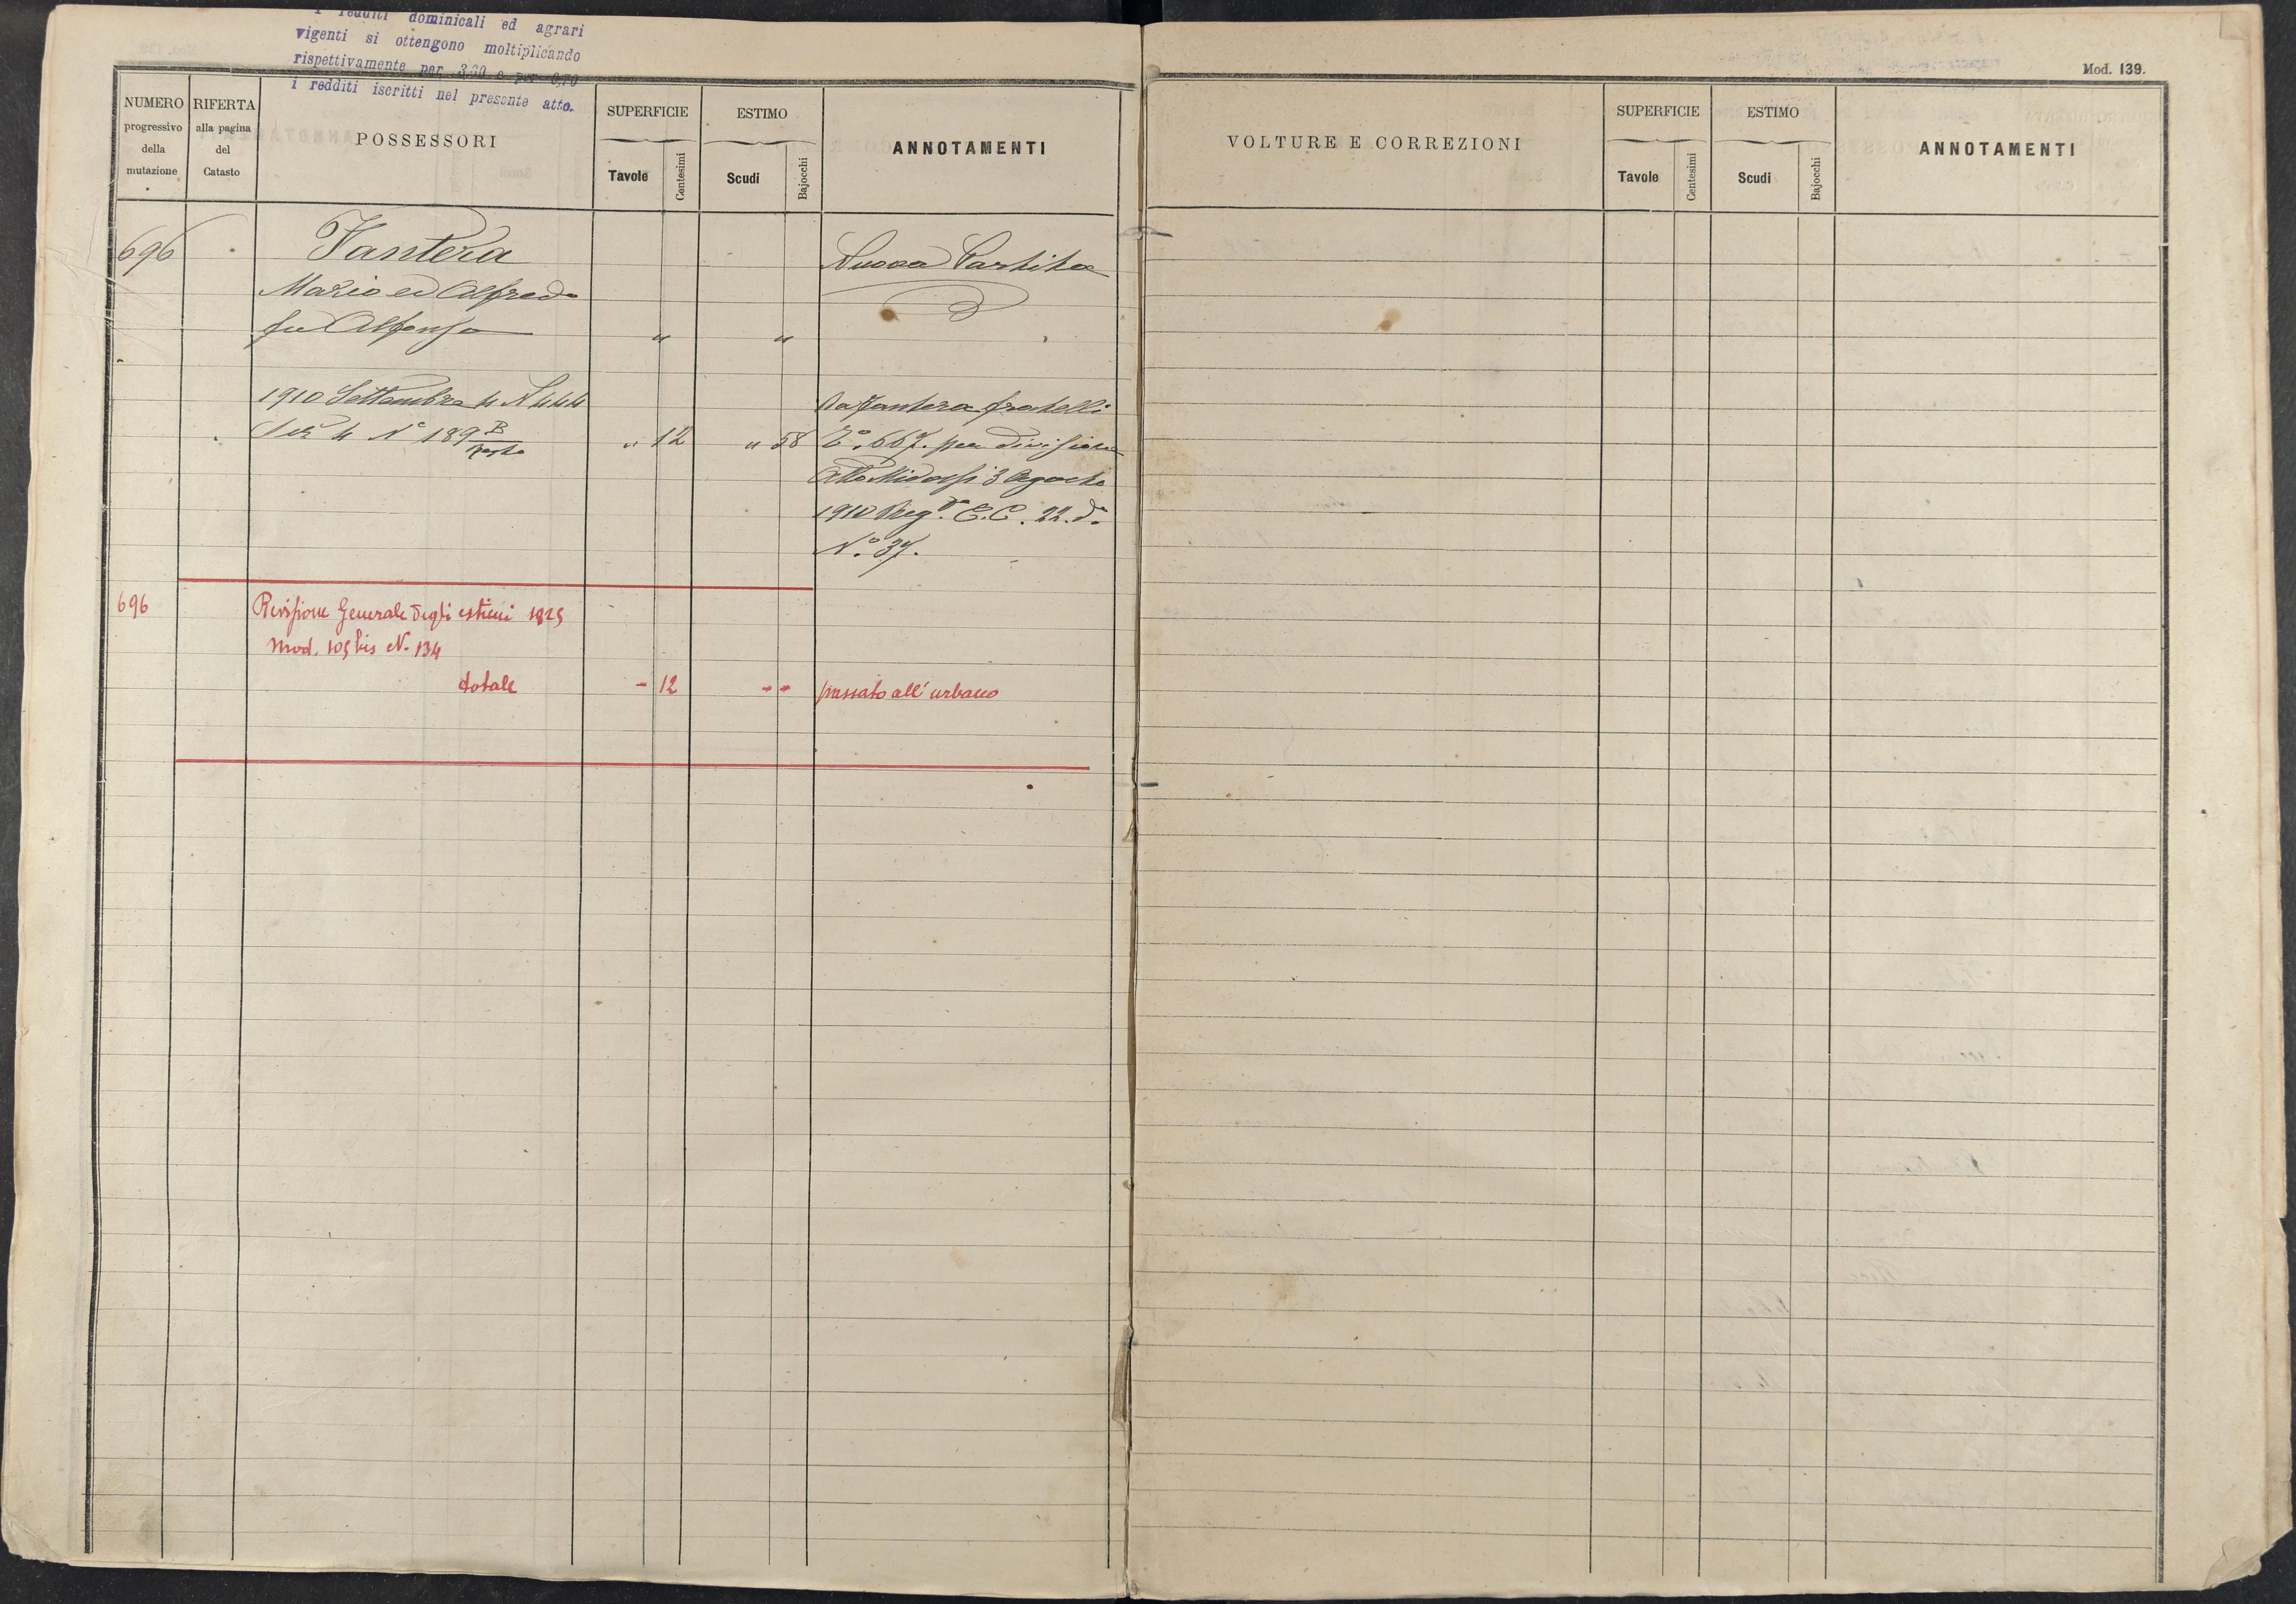 I redditi dominicali ed agrari
vigenti si ottengono moltiplicando
rispettivamente per 3,60 e per
i redditi iscritti nel presente atto.
Mod. 139.
NUMERO progressivo della mutazione
RIFERTA alla pagina del Catasto
POSSESSORI
SUPERFICIE
Tavole
Centesimi
ESTIMO
Scudi
Bajocchi
ANNOTAMENTI
VOLTURE E CORREZIONI
SUPERFICIE
Tavole
Centesimi
ESTIMO
Scudi
Bajocchi
ANNOTAMENTI
696 Fantera Nuova Partita
Mario ed Alfredo
fu Alfonso " "
1910 Settembre 4 N 444 Da Fantera fratelli
Sez 4 N° 189 B/resto " 12 " 58 667. per divisione
Atto Midossi 3 Agosto
1910 Reg° C.C. 22. do
N° 37.
696 Revisione Generale degli estimi 1925
Mod. 105 bis N. 134
totale - 12 - - passato all'urbano